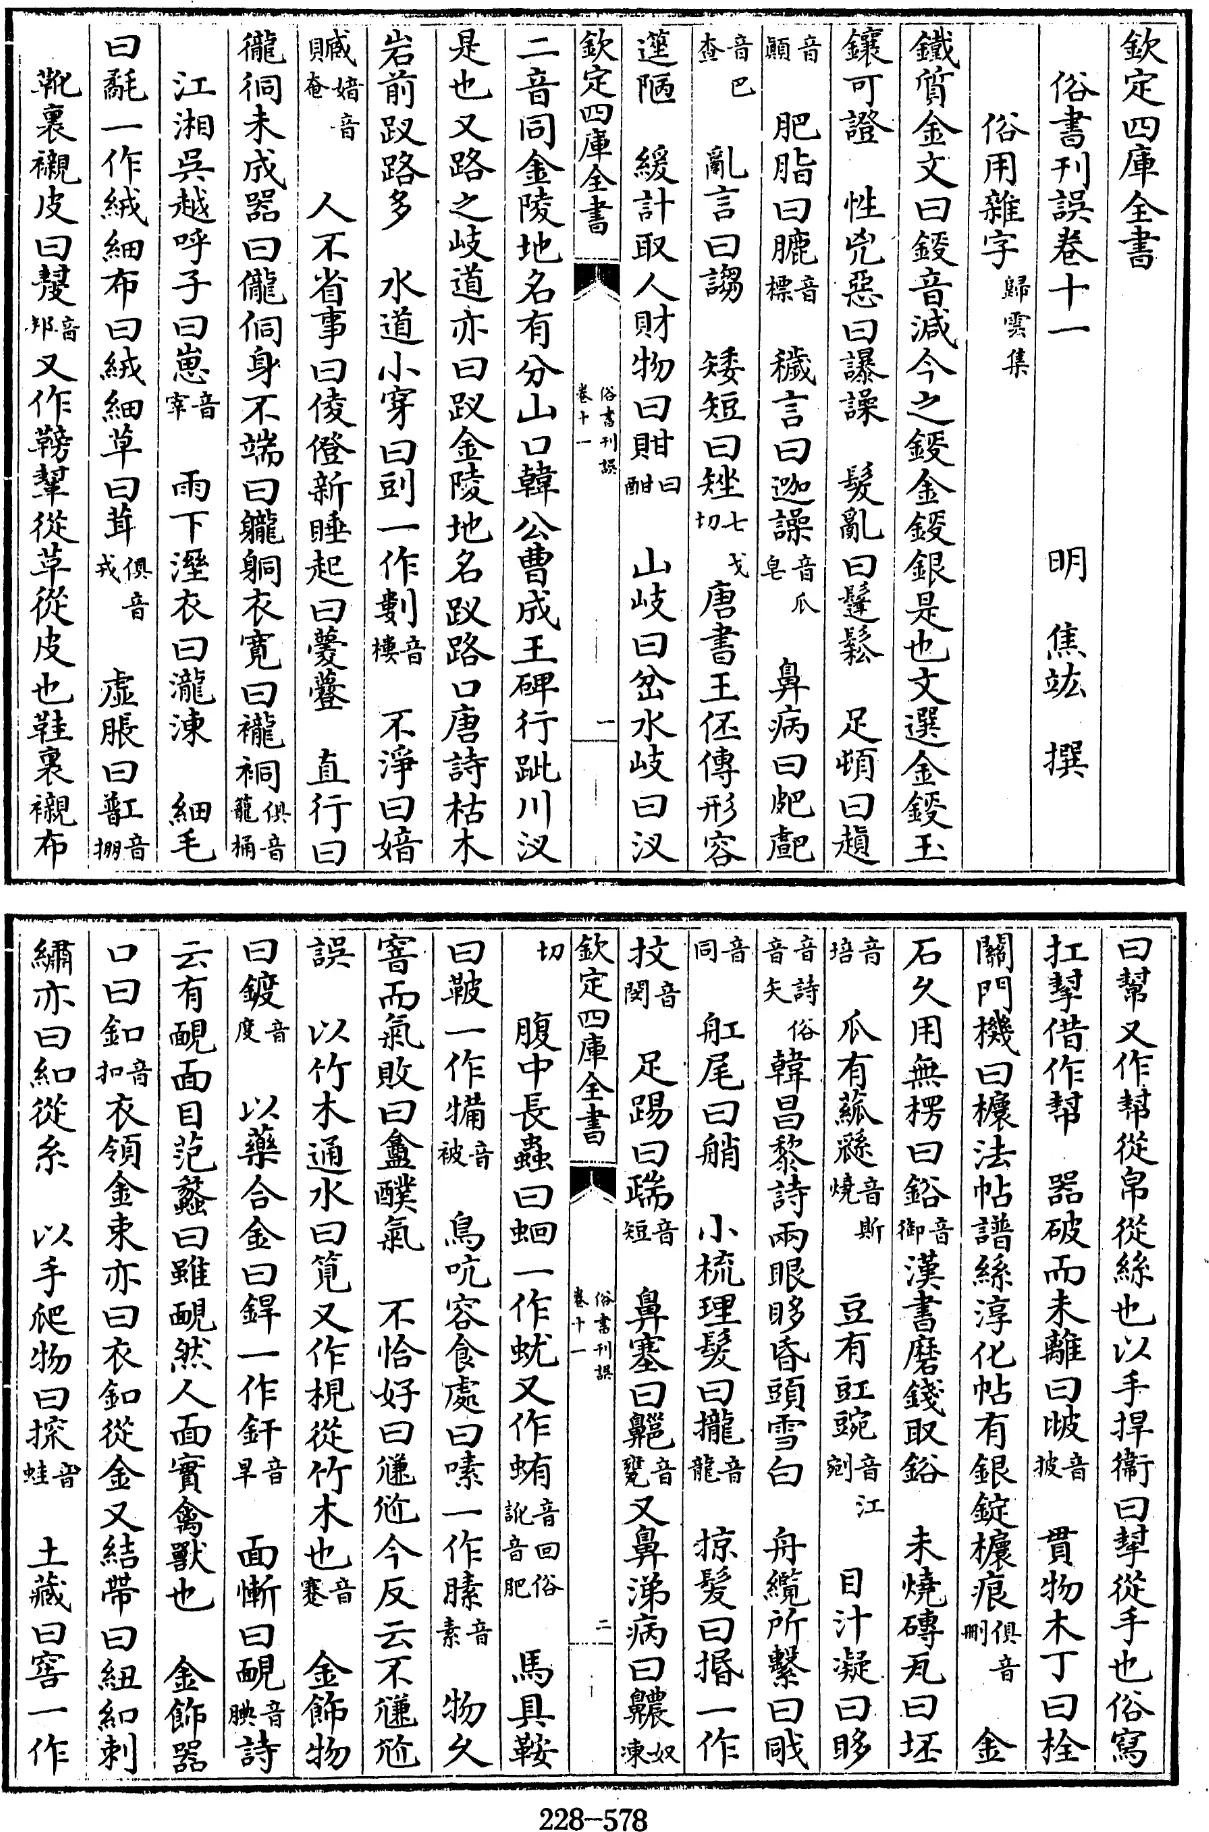 欽定四庫全書
俗書刊誤卷十一
明 焦竑 撰
俗用雜字 歸雲集
鐵質金文曰鋄音減今之鋄金鋄銀是也文選金鋄玉
鑲可證 性兇惡曰䜂譟 髮亂曰鬔鬆 足頓曰趚
顛音 肥脂曰膔音標 穢言曰譟音瓜皂 鼻病曰皰齇
音巴查 亂言曰謅 矮短曰矬七戈切 唐書王伾傳形容
蓌陋 緩計取人財物曰㽏曰酣 山岐曰岔水岐曰汊
欽定四庫全書
俗書刊誤
卷十一
一
二音同金陵地名有分山口韓公曹成王碑行跐川汊
是也又路之岐道亦曰䟕金陵地名䟕路口唐詩枯木
岩前䟕路多 水道小穿曰剅一作剺音樓 不淨曰媕
贓媕音賍奄 人不省事曰倰僜新睡起曰㝱㝱 直行曰
儱侗未成器曰儱侗身不端曰躘躼衣寬曰襱裥俱音籠桶
江湘吳越呼子曰崽音宰 雨下溼衣曰瀧涷 細毛
曰毻一作絨細布曰絨細草曰茸俱音戎 虛脹曰音掤
靴裏襯皮曰音邦又作䩷鞤從革從皮也鞋裏襯布
曰幫又作幇從帛從絲也以手捍衞曰㨍從手也俗寫
扛㨍借作幇 器破而未離曰㱟音披 貫物木丁曰栓
關門機曰櫦法帖譜絲淳化帖有銀錠櫦痕俱音刪 金
石久用無楞曰鋊音御漢書磨錢取鋊 未燒磚瓦曰坯
音培 瓜有蓏音斯燒 豆有豇豌音江剜 目汁凝曰眵
音詩俗音矢 韓昌黎詩兩眼眵昏頭雪白 舟纜所繫曰戙
音同 舡尾曰艄 小梳理髮曰攏音龍 掠髮曰捪一作
抆音閔 足踢曰踹音短 鼻塞曰齆音甕又鼻涕病曰齈奴凍
欽定四庫全書
俗書刊誤
卷十一
二
切 腹中長蟲曰蛔一作蚘又作蛕音回俗訛音肥 馬具鞍
曰鞁一作犕音被 鳥吭容食處曰嗉一作膆音素 物久
窨而氣敗曰盦醭氣 不恰好曰尲尬今反云不尲尬
誤 以竹木通水曰筧又作梘從竹木也音蹇 金飾物
曰鍍音度 以藥合金曰銲一作釬音旱 面慚曰靦音腆詩
云有靦面目范蠡曰雖靦然人面實禽獸也 金飾器
口曰釦音扣衣領金束亦曰衣釦從金又結帶曰紐紖刺
繡亦曰紖從糸 以手爬物曰探音蛙 土藏曰窖一作
228-578